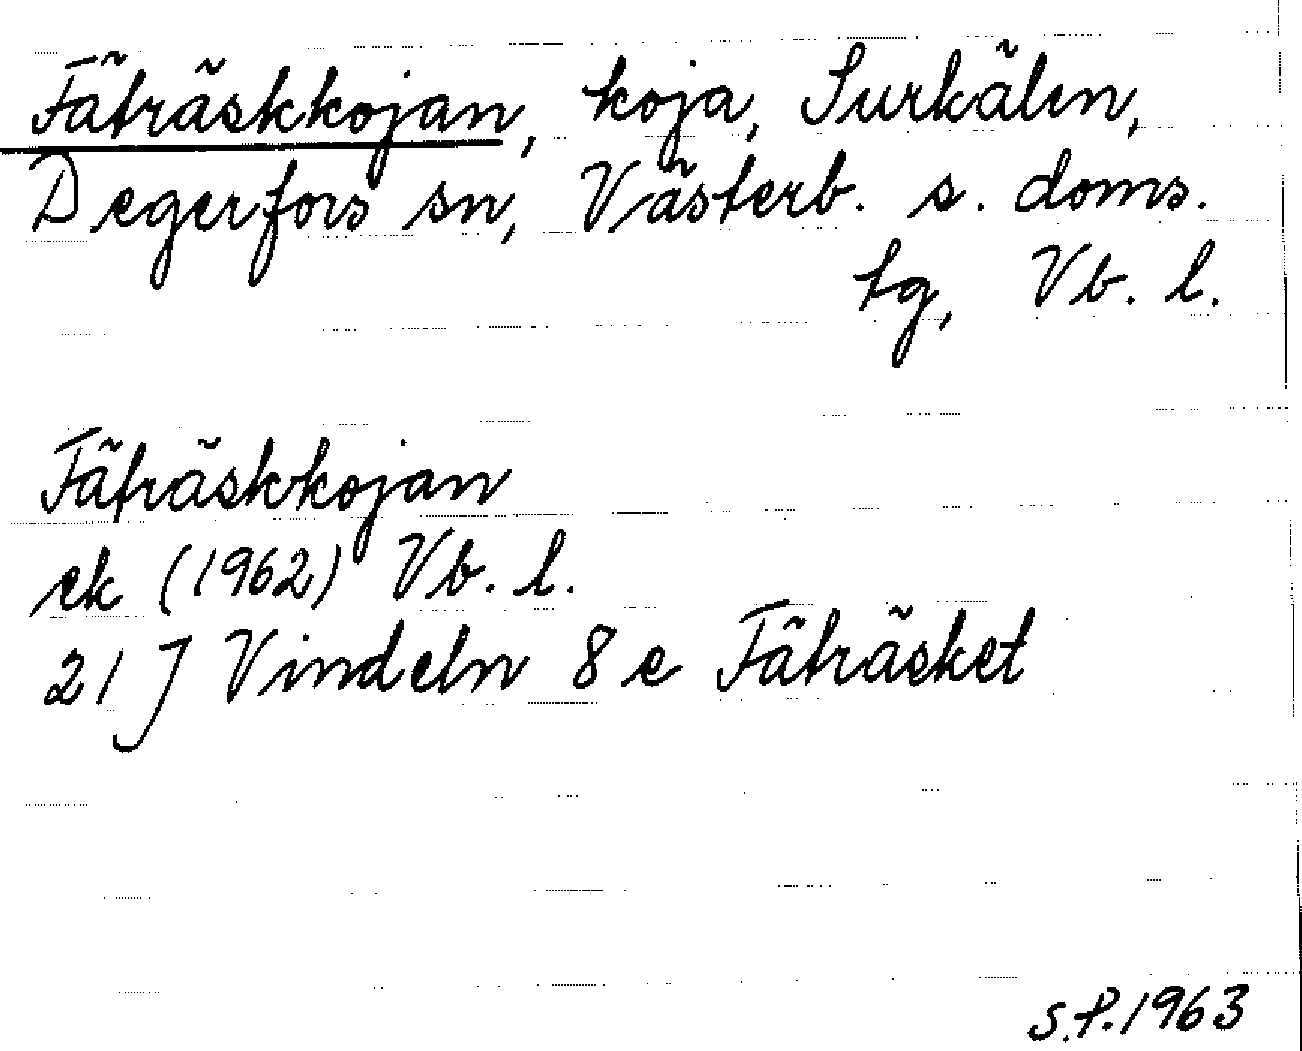 Fäträskkojan, koja, Surkälen,
Degerfors sn, Västerb. s. doms.
tg, Vb. l.
Fäträskkojan
ek (1962) Vb. l.
21 J Vindeln 8 e Fäträsket
S.P. 1963